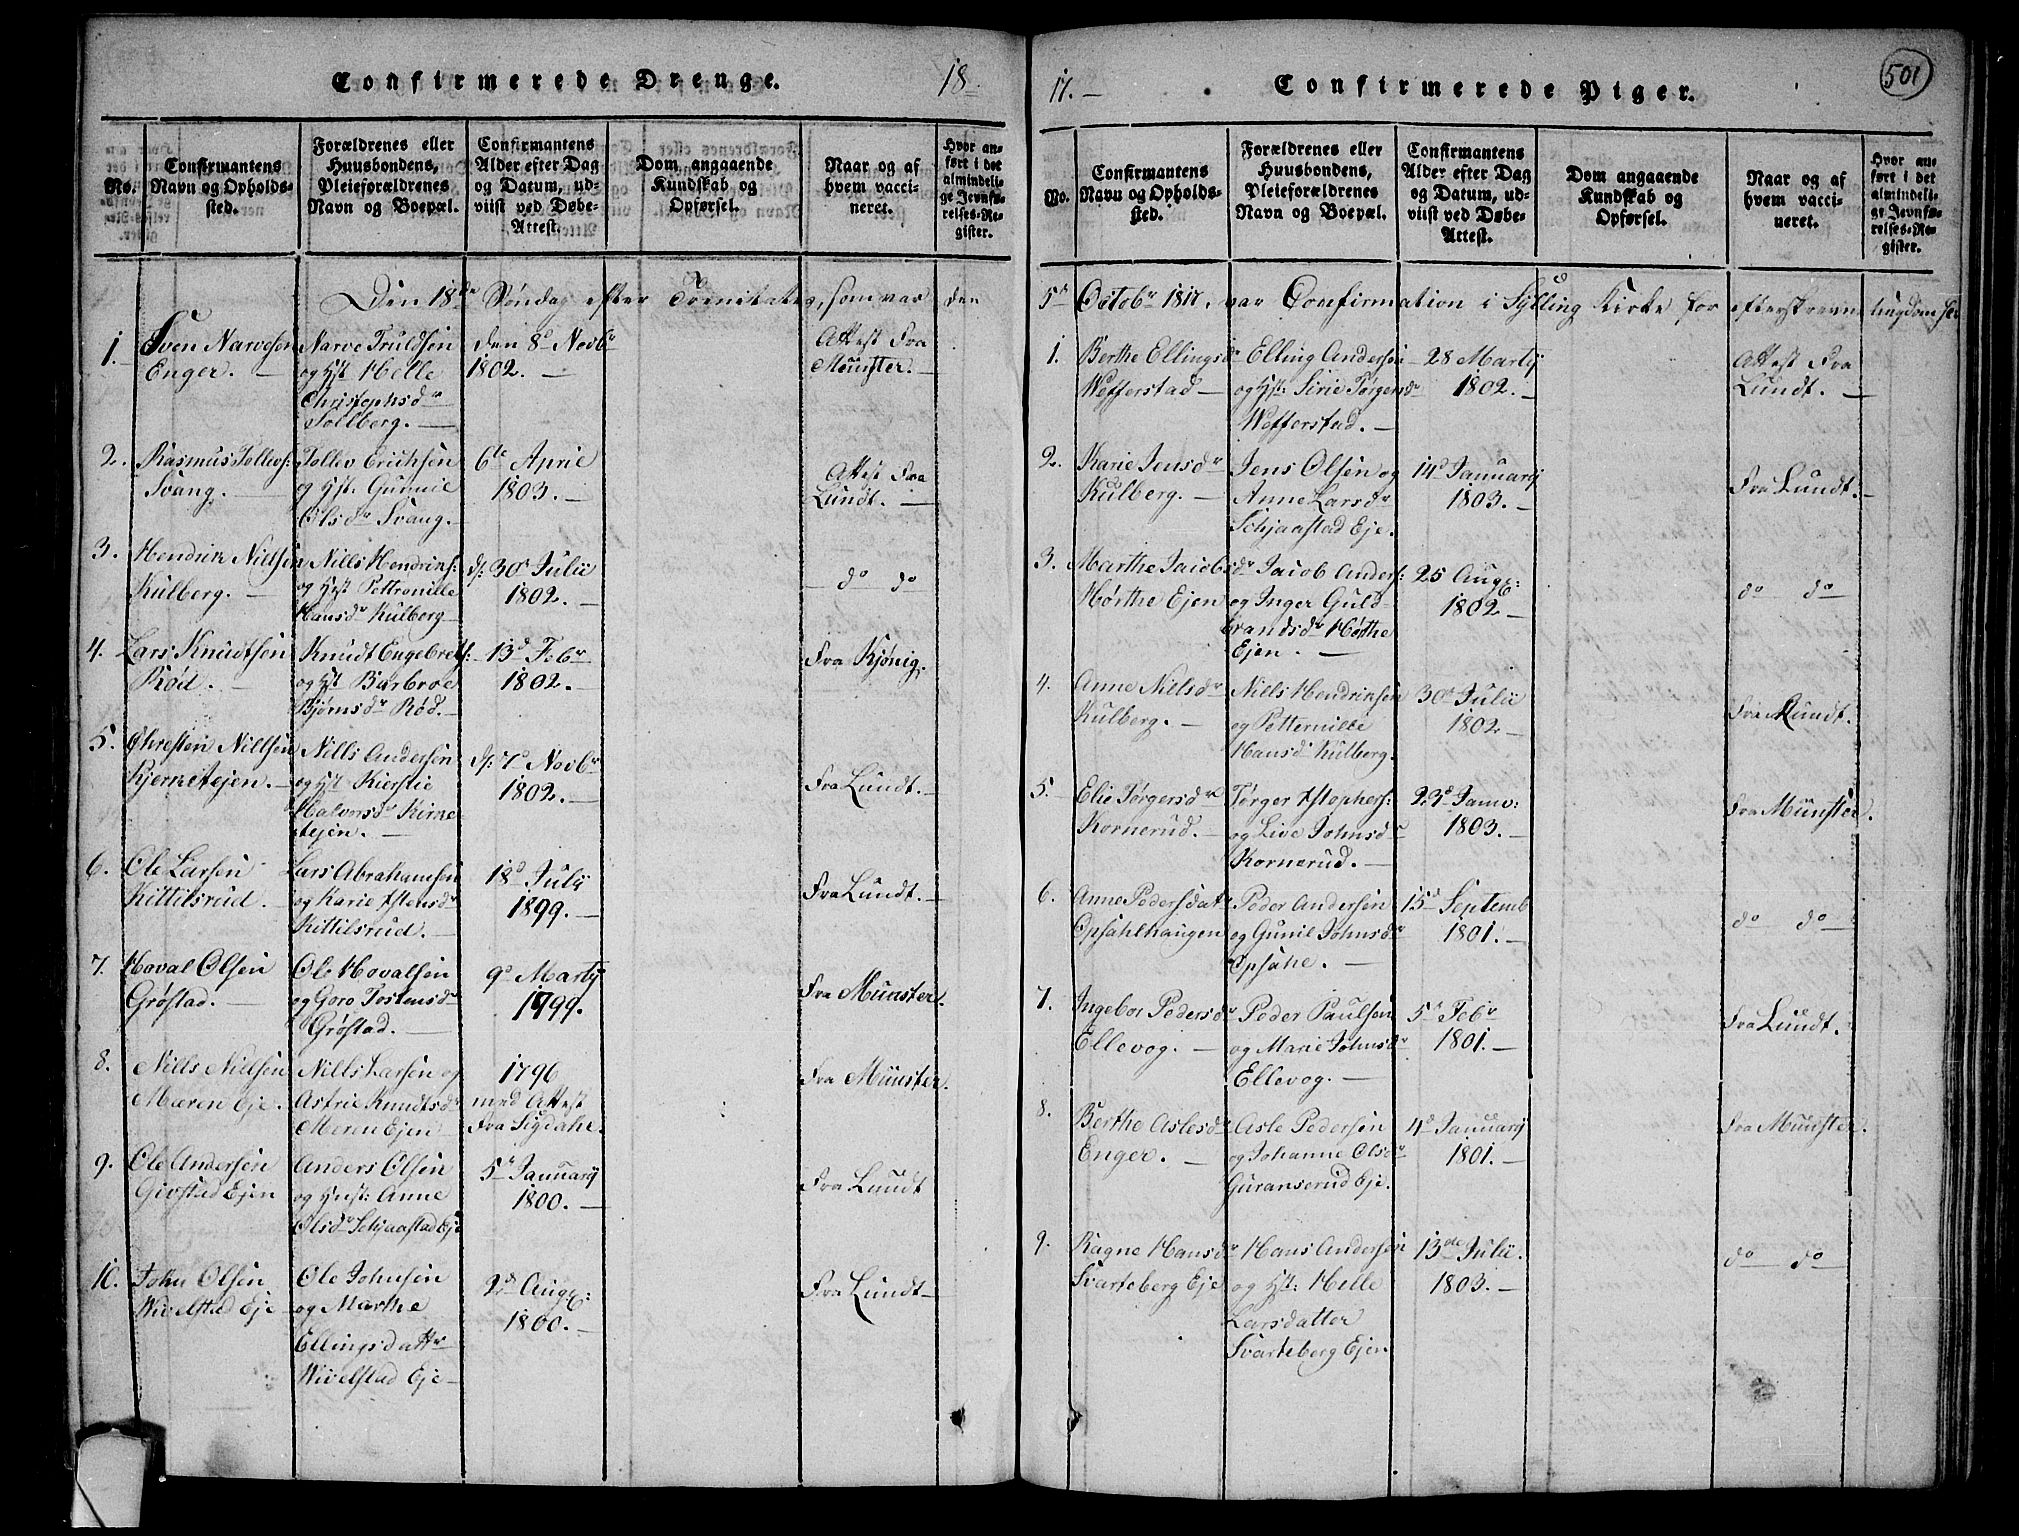 Confirmerede Drenge.
18
No.
Confirmantens
Navn og Opholds-
sted.
Forældrenes eller
Huusbondens,
Pleieforældrenes
Navn og Boepæl.
Confirmantens
Alder efter Dag
og Datum, ud-
viist ved Døbe-
Attest.
Dom angaaende
Kundskab og
Opførsel.
Naar og af
hvem vacci-
neret.
Hvor an-
ført i det
almindeli-
ge Jevnfø-
relses-Re-
gister.
Den 18de Søndag efter Trinitatis, som var den
1.
Sven Narvesen
Enger.
Narve Truldsen
og Hst Helle
Christophsdr
Sollberg.
den 8d Novbr
1802.
Attest Fra
Münster.
2.
Rasmus Tollevs:
Svang.
Tollev Erichsen
og Hst: Gunnil
Olsdr Svang.
6te April
1803.
Attest Fra
Lundt.
3.
Hendrik Nielsen
Kulberg.
Nills Hendriks:
og Hst Pettronille
Hansdr Kulberg
d: 30d Julii
1802.
do do
4.
Lars Knudtsen
Rød.
Knudt Engebrets:
og Hst Barbroe
Bjørnsdr Rød.
13d Febr
1802.
Fra Kjønig.
5.
Christen Nillsen
Kjernetejen.
Nills Andersen
og Hst Kirstie
Halvorsdr Kirne
tejen.
d: 7d Novbr
1802.
Fra Lundt.
6.
Ole Larsen
Kittilsrud.
Lars Abrahamsen
og Karie Astensdr
Kittilsrud.
18d July
1899.
Fra Lundt.
7.
Hoval Olsen
Grøstad.
Ole Hovalsen
og Goro Tostensdr
Grøstad.
9d Marty
1799.
Fra Münster.
8.
Nills Nillsen
Mæren Eje.
Nills Larsen og
Astrie Knudtsdr
Meren Ejen
1796
med Attest
Fra Sigdahl.
Fra Münster.
9.
Ole Andersen
Givstad Ejen
Anders Olsen
og Hust: Anne
Olsdr Schjaastad Eje
5d January
1800.
Fra Lundt
10.
John Olsen
Wivelstad Eje
Ole Johnsen
og Marthe
Ellingsdattr
Wivelstad Eje
2d Aug:
1800.
Fra Lundt
17.
Confirmerede Piger.
501
No.
Confirmantens
Navn og Opholds-
sted.
Forældrenes eller
Huusbondens,
Pleieforældrenes
Navn og Boepæl.
Confirmantens
Alder efter Dag
og Datum, ud-
viist ved Døbe-
Attest.
Dom angaaende
Kundskab og
Opførsel.
Naar og af
hvem vacci-
neret.
Hvor an-
ført i det
almindeli-
ge Jevnfø-
relses-Re-
gister.
5te Octobr 1817. var Confirmation i Sylling Kirke for efterskrevne Ungdom
1.
Berthe Ellingsdr
Wefferstad
Elling Andersen
og Hst: Sirie Jørgensdr
Wefferstad.
28 Marty
1802.
Attest Fra
Lundt.
2.
Karie Jensdr
Kulberg.
Jens Olsen og
Anne Larsdr
Schjaastad Eje.
14d January
1803.
Fra Lundt.
3.
Marthe Jacobsdr
Hørthe Ejen
Jacob Anders:
og Inger Guld-
brandsdr Hørthe
Ejen.
25 Aug:
1802
do do
4.
Anne Nielsdr
Kulberg.
Niells Hendriksen
og Petternille
Hansdr Kulberg.
30d Julii
1802
Fra Mundt.
5.
Elie Jørgersdr
Kornerud.
Jørger Astophers:
og Live Johnsdr
Kornerud.
23d Janv:
1803.
Fra Münster.
6.
Anne Pedersdat
Opsahlhaugen
Peder Andersen
og Gunil Johnsdr
Opsahe.
15d Septemb
1801.
do do
7.
Ingebor Pedersdr
Ellevog.
Peder Paulsen
og Marie Johnsdr
Ellevog.
5d Febr
1801.
Fra Lundt.
8.
Berthe Aslesdr
Enger.
Asle Pedersen
og Johanne Olsdr
Guranserud Eje.
4d January
1801.
Fra Münster.
9.
Ragne Hansdr
Svarteberg Eje
Hans Andersen
og Hst: Helle
Larsdatter
Svarteberg Ejen.
13de Julii.
1803.
do do